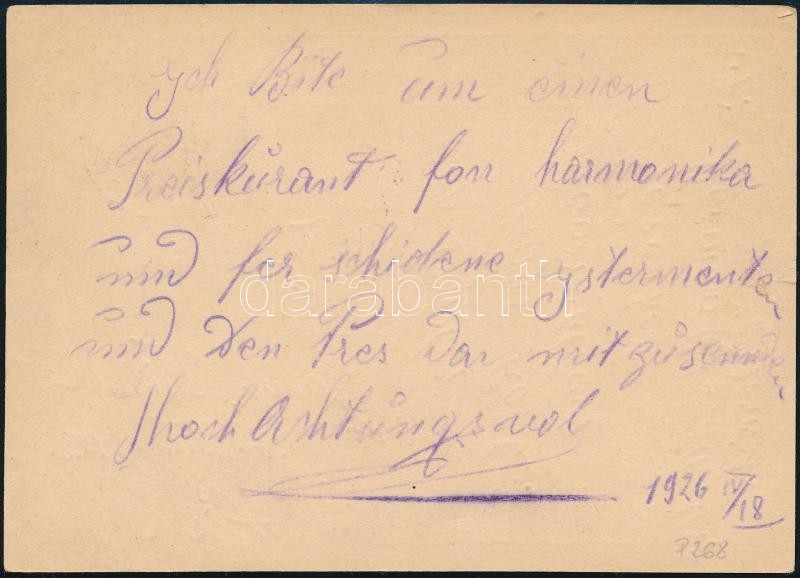 Ich Bite um einen
Preiskürant fon harmonika
und fer schidene ystermenten
und den Pres dar mit zŭsenden
HochAchtŭngsvol
1926 IV/18
P268
darabanth